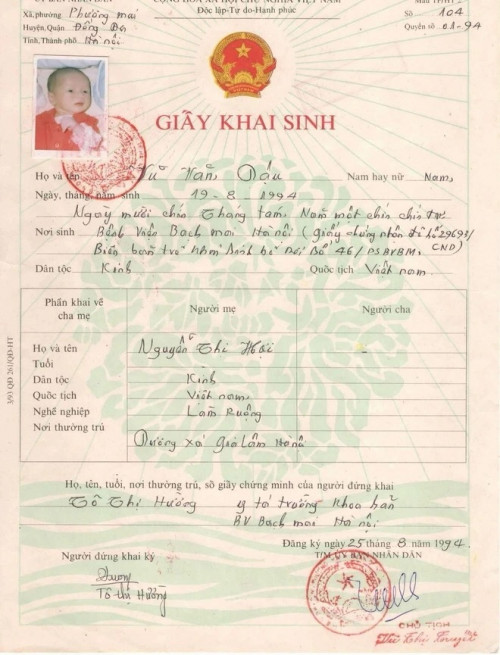 ỦY BAN NHÂN DÂN CỘNG HÒA XÃ HỘI CHỦ NGHĨA VIỆT NAM Mẫu TP/HT 2
Xã, phường Phường mai Độc lập-Tự do-Hạnh phúc Số 104
Huyện, Quận Đống Đa Quyển số 01-94
Tỉnh, Thành phố Hà nội
GIẤY KHAI SINH
Họ và tên Vũ Văn Dậu Nam hay nữ Nam
Ngày, tháng, năm sinh 19-8-1994
Ngày mười chín Tháng tám, Năm một chín chín tư
Nơi sinh Bệnh Viện Bạch mai Hà nội (giấy chứng nhận số 29693/
Biên bản trẻ 46/PSBVBM, CND)
Dân tộc Kinh Quốc tịch Việt nam
Phần khai về cha mẹ Người mẹ Người cha
Họ và tên Nguyễn Thi Hợi -
Tuổi
Dân tộc Kinh
Quốc tịch Việt nam
Nghề nghiệp Làm Ruộng
Nơi thường trú Dương xá Gia lâm Hà nội
3/93 QĐ 261/QĐ-HT
Họ, tên, tuổi, nơi thường trú, số giấy chứng minh của người đứng khai
Tô Thị Hường y tá trưởng Khoa sản
BV Bạch mai Hà nội
Đăng ký ngày 25 tháng 8 năm 1994
Người đứng khai ký T/M ỦY BAN NHÂN DÂN
Hường
Tô thị Hường
CHỦ TỊCH